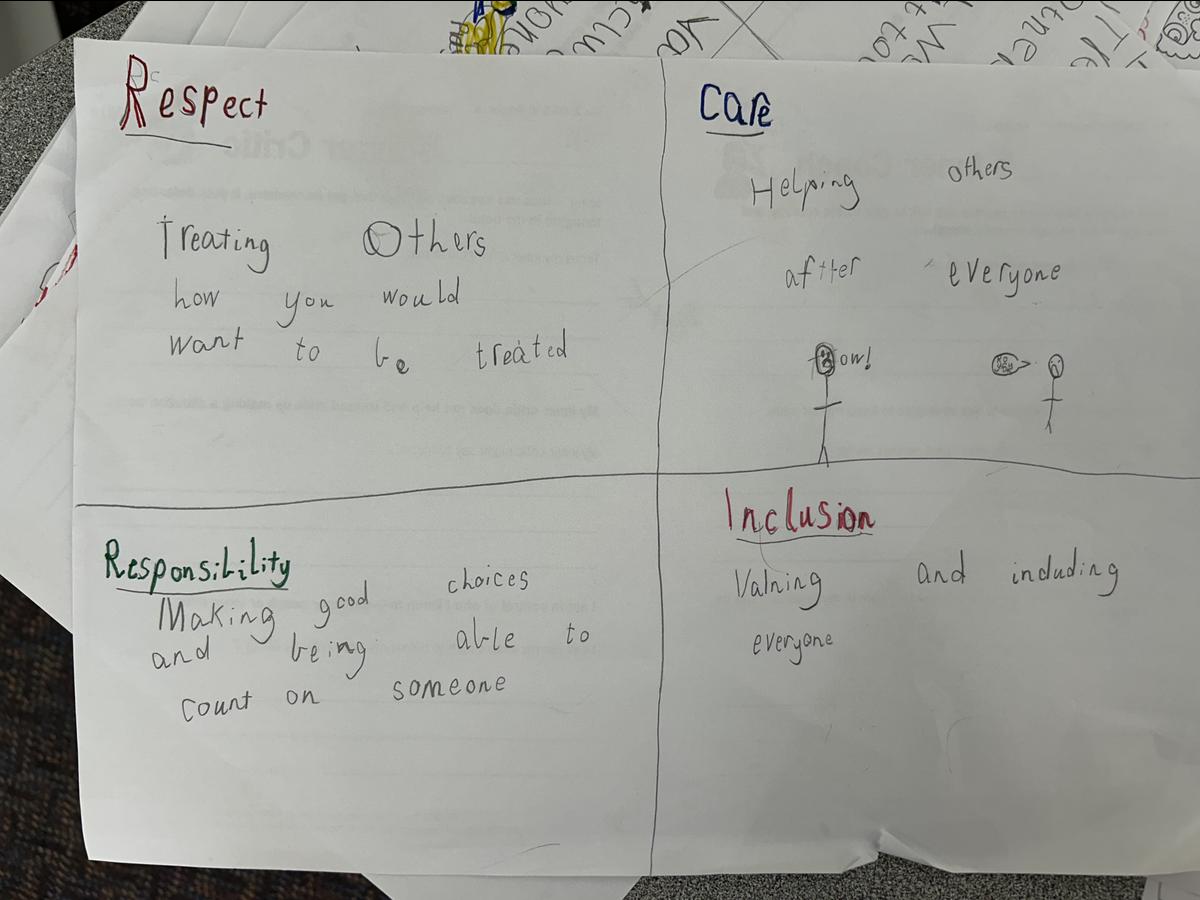 Respect
Treating Others
how you would
want to be treated
Care
Helping others
aftter everyone
ow!
Responsibility
Making good choices
and being able to
count on someone
Inclusion
Valning and including
everyone